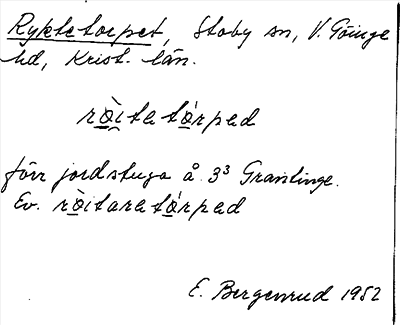 Ryktetorpet, Stoby sn, V. Göinge
hd, Krist. län.
rò̱i̯tetá̱rped
förr jordstuga å 3³ Granlinge.
Ev. rò̱itaretá̱rped
E. Bergenrud 1952